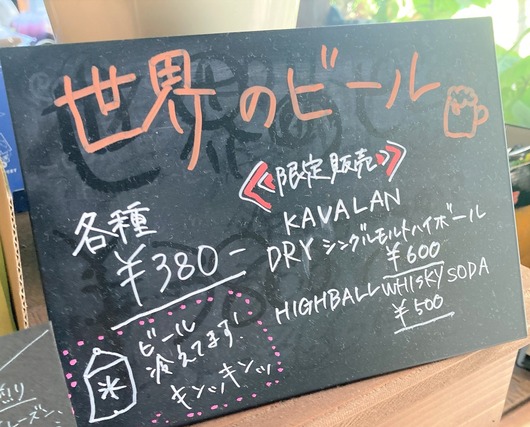 世界のビール
限定販売
各種
¥380-
KAVALAN
DRY シングルモルトハイボール
¥600
HIGHBALL WHISKY SODA
¥500
ビール
冷えてます!
キンッキンッ